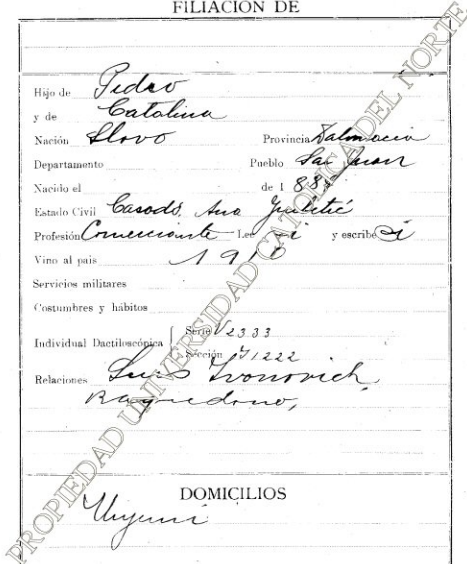 FILIACION DE
Hijo de Pedro
y de Catalina
Nación Slavo Provincia Dalmacia
Departamento Pueblo San Juan
Nacido el de 1 885
Estado Civil Casado, Ana
Profesión Comerciante Lee si y escribe Si
Vino al pais 1910
Servicios militares
Costumbres y hábitos
Individual Dactiloscópica Serie V2333
Sección I1222
Relaciones Luis Ivonovich,
Baquedano,
DOMICILIOS
Uyuni
PROPIEDAD UNIVERSIDAD CATOLICA DEL NORTE